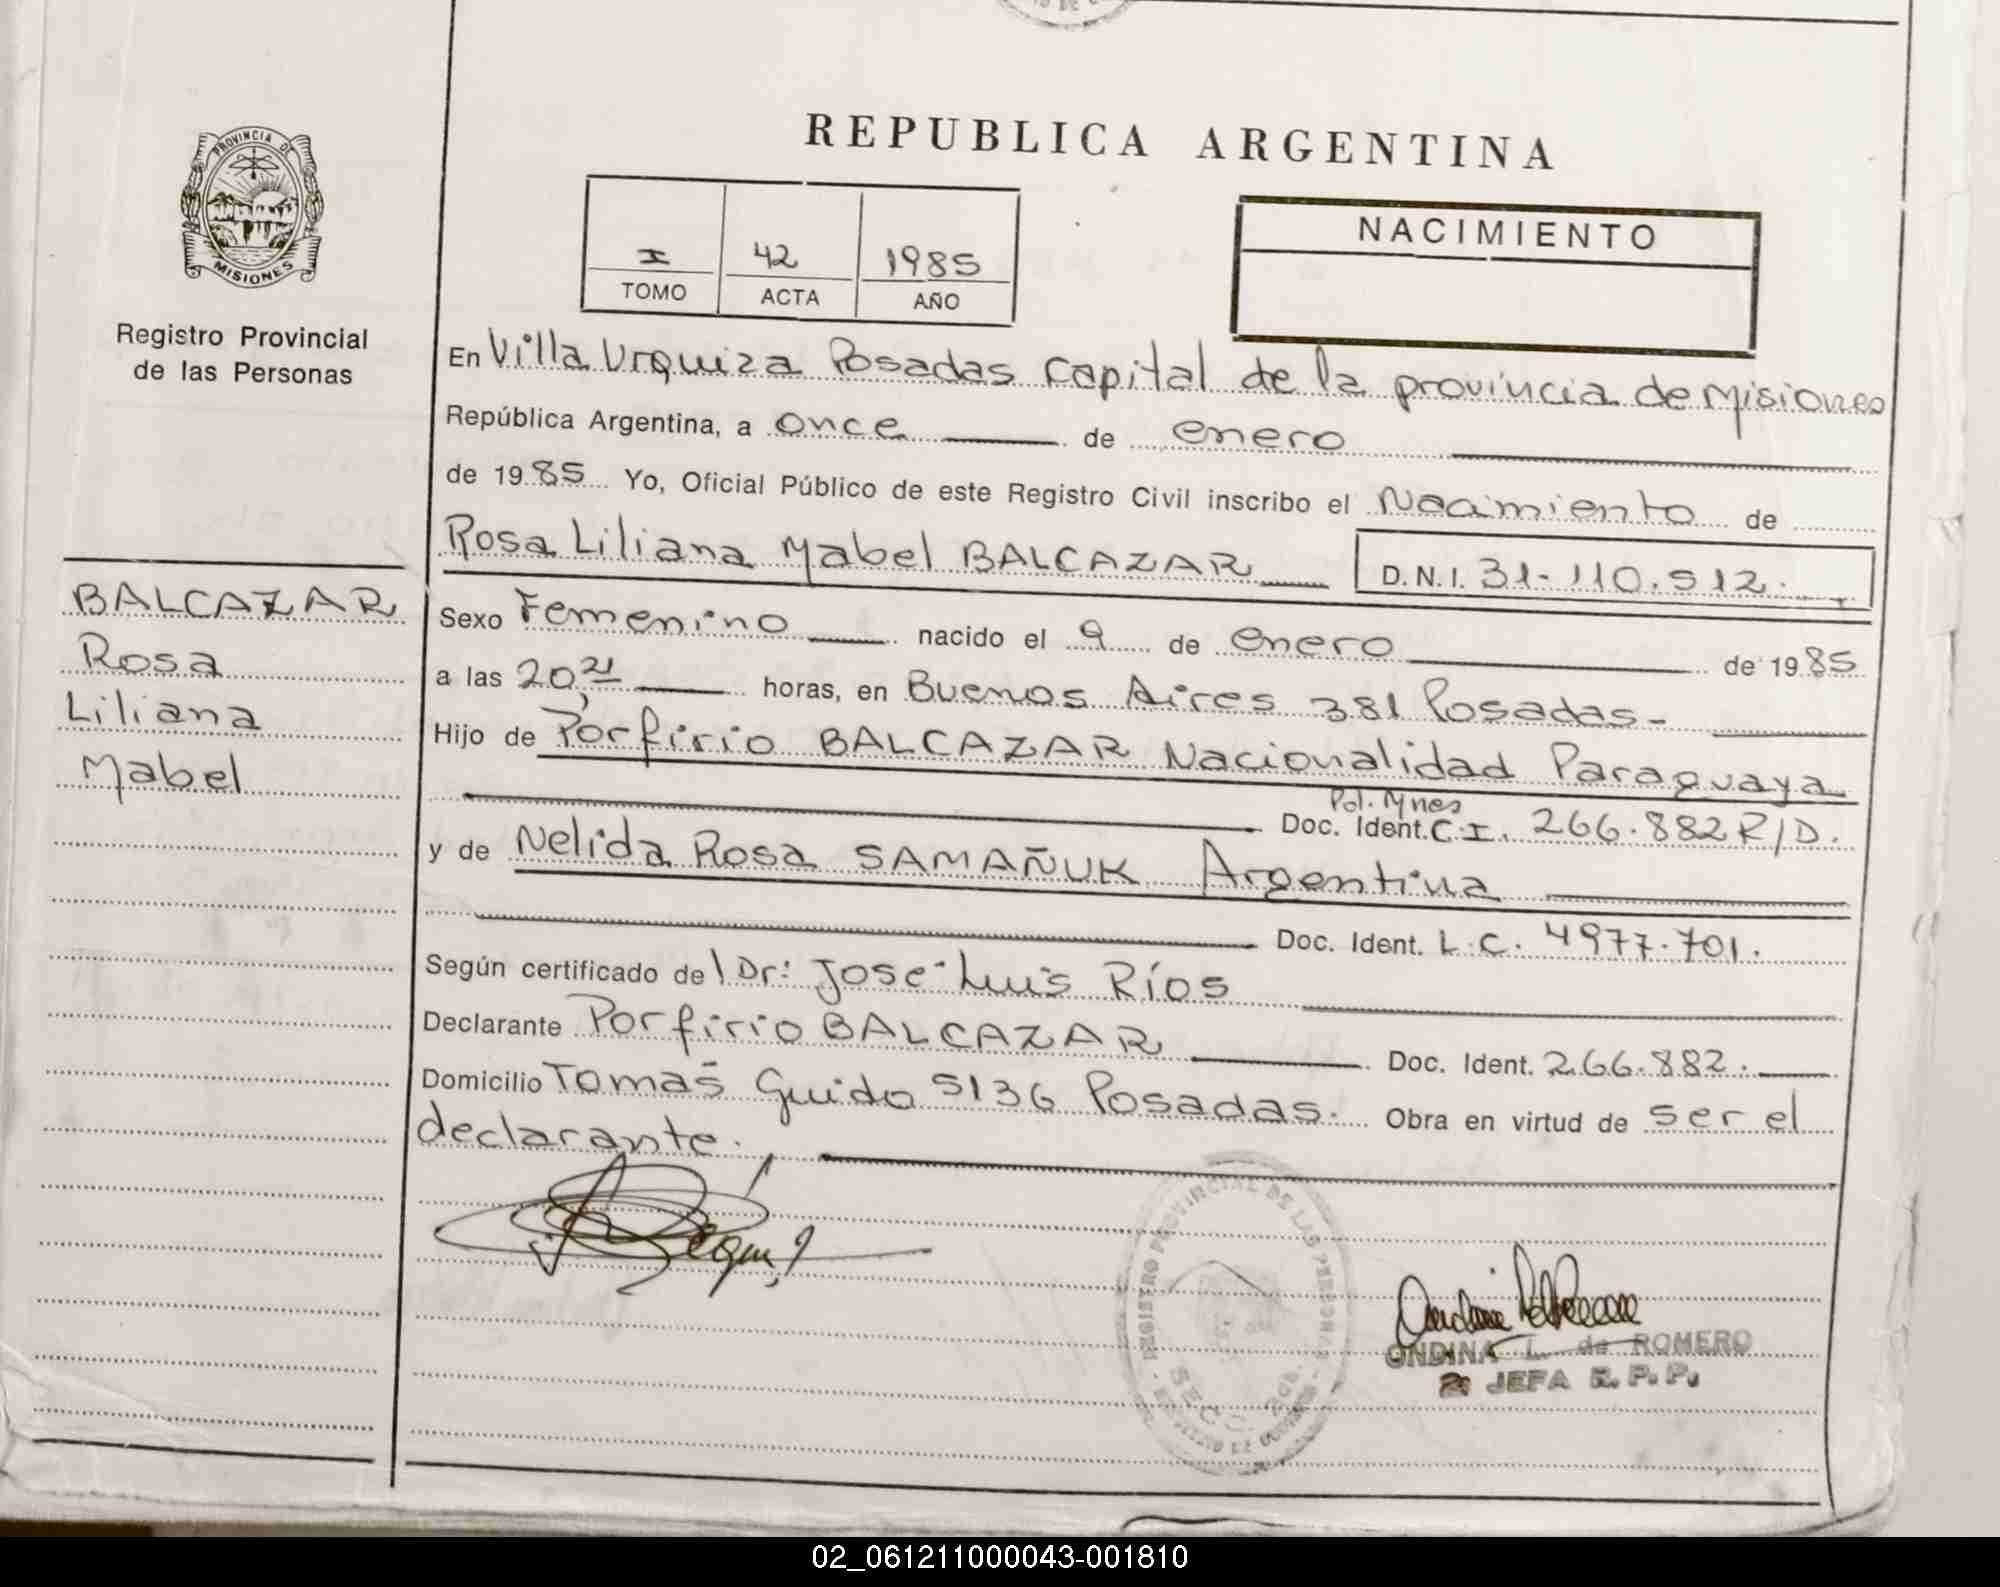 REPUBLICA ARGENTINA
PROVINCIA DE
MISIONES
Registro Provincial
de las Personas
I 42 1985
TOMO ACTA AÑO
NACIMIENTO
En Villa Urquiza Posadas Capital de la provincia de Misiones
República Argentina, a once de enero
de 1985 Yo, Oficial Público de este Registro Civil inscribo el Nacimiento de
Rosa Liliana Mabel BALCAZAR D.N.I. 31-110.512.
BALCAZAR
Rosa
Liliana
Mabel
Sexo Femenino nacido el 9 de enero de 1985
a las 20,21 horas, en Buenos Aires 381 Posadas-
Hijo de Porfirio BALCAZAR Nacionalidad Paraguaya
Pol. Mnes
Doc. Ident. C.I. 266.882 R/D.
y de Nelida Rosa SAMAÑUK Argentina
Doc. Ident. L.C. 4977.701.
Según certificado del Dr: José Luis Ríos
Declarante Porfirio BALCAZAR Doc. Ident. 266.882.
Domicilio Tomás Guido 5136 Posadas. Obra en virtud de ser el
declarante.
REGISTRO PROVINCIAL DE LAS PERSONAS
SECC.
ONDINA L. de ROMERO
JEFA R.P.P.
02_061211000043-001810